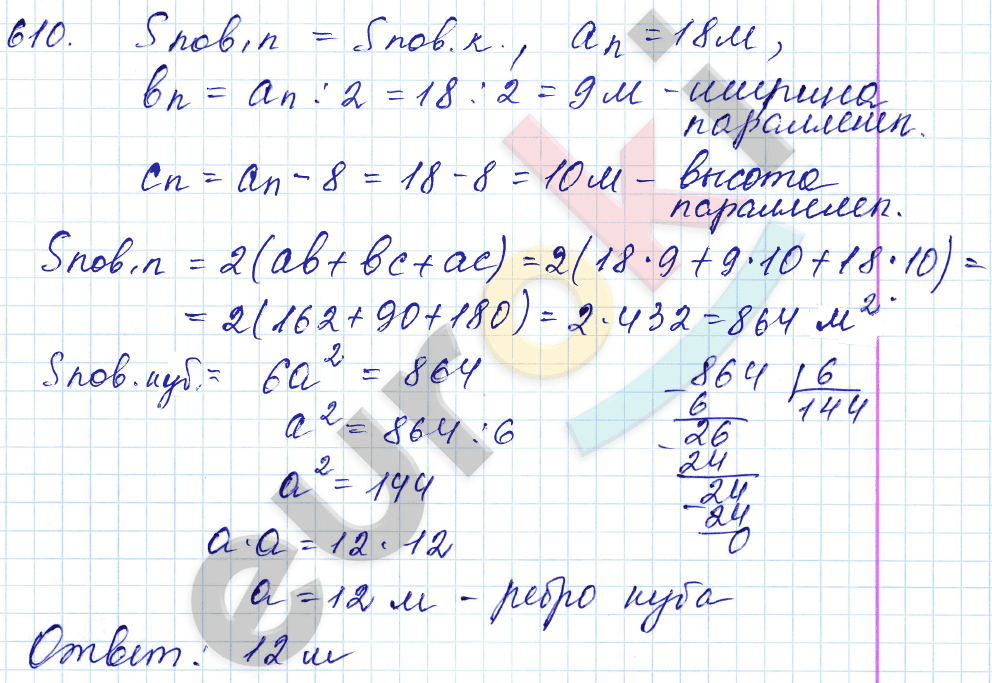 610. Sпов.п = Sпов.к., aп = 18м,
вп = aп : 2 = 18 : 2 = 9м - ширина
параллелеп.
cп = aп - 8 = 18 - 8 = 10м - высота
параллелеп.
Sпов.п = 2(ab + bc + ac) = 2(18·9 + 9·10 + 18·10) =
= 2(162 + 90 + 180) = 2·432 = 864 м².
Sпов.куб. = 6a² = 864
a² = 864 : 6
a² = 144
a·a = 12·12
a = 12 м - ребро куба
Ответ: 12 м
- 864 | 6
6 144
- 26
24
- 24
24
0
euroki